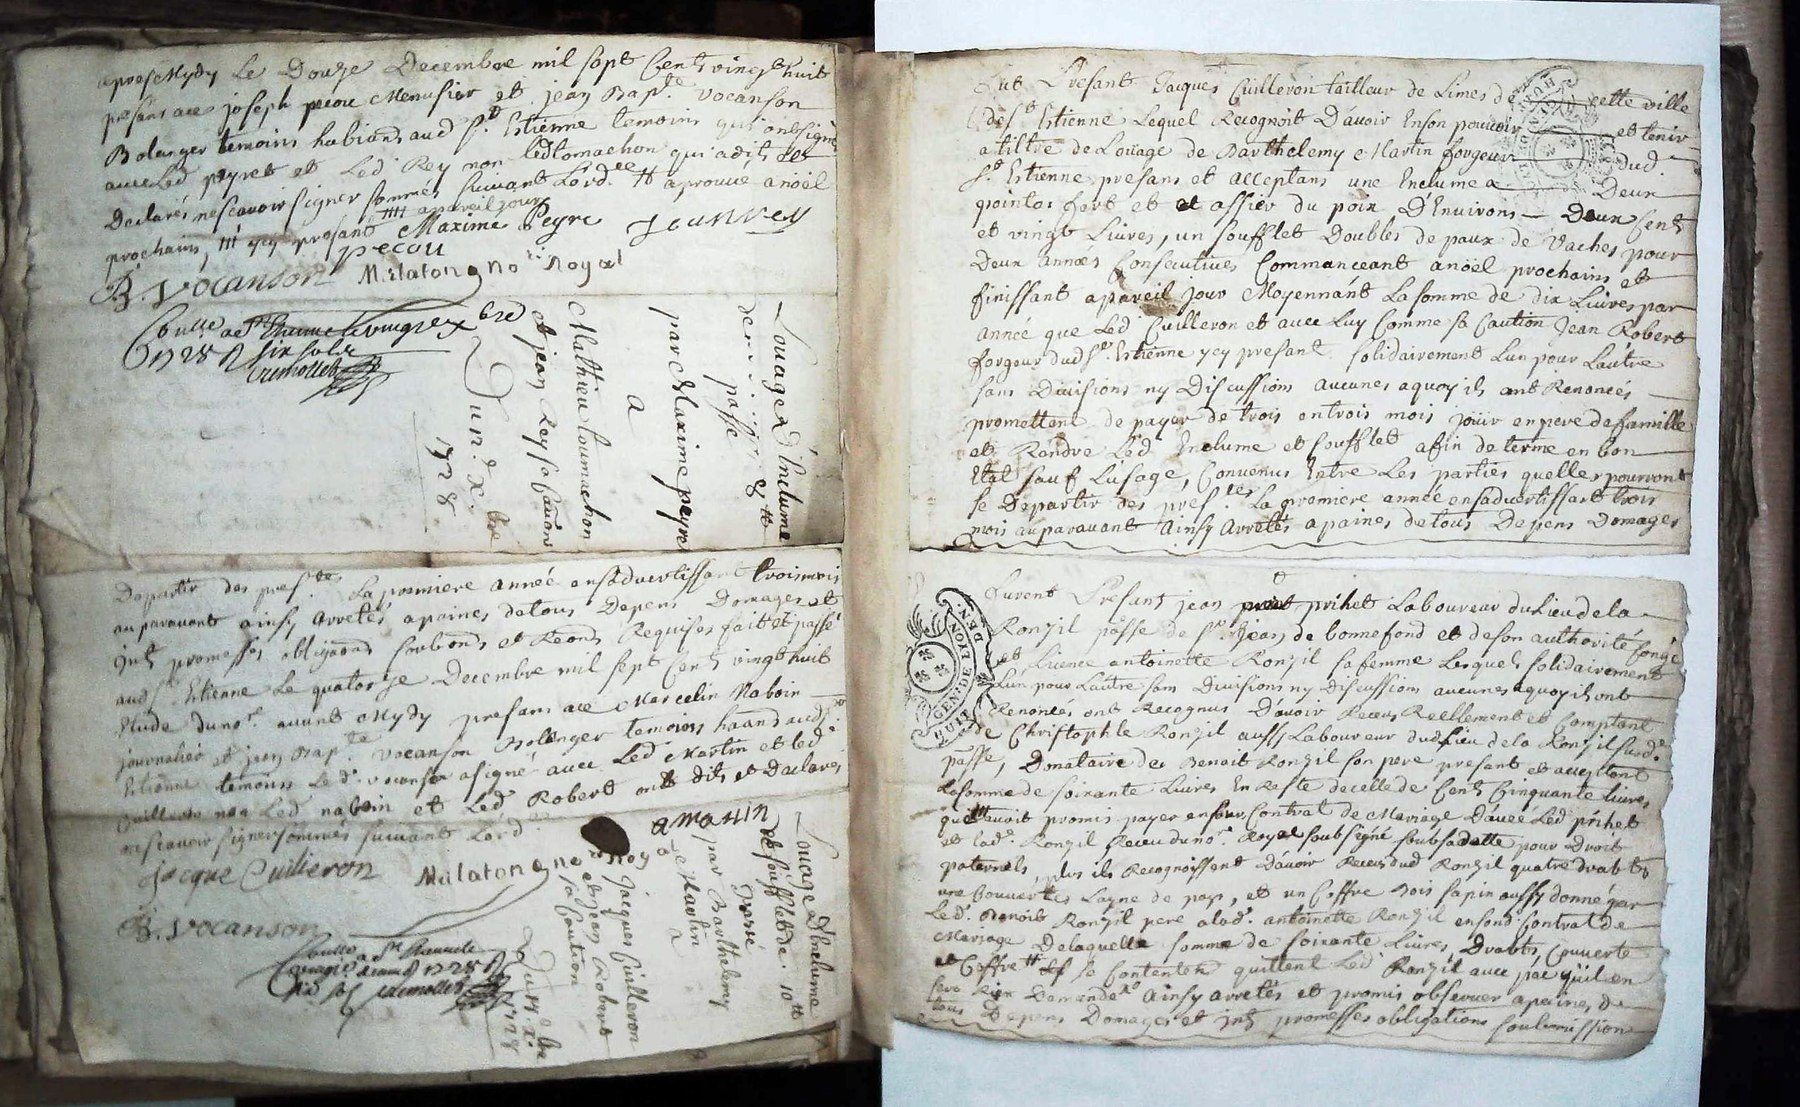 apresmydy Le Douze Decembre mil sept Cents vingt huit
presans ace joseph pecou Menusier et jean Bapt.e vocanson
Bolanger temoins habitans aud St. Estienne temoins qui ont signé
avec Led peyret et Led Rey non led tomachon qui a dit et
Declarés ne scavoir signer sommés suivant L'ord.ce # aprouve a noël
prochains, #### apareil jour
## ycy presant Maxime Peyre Jean Rey
pecou
B. vocanson Mellatongne no.re Royal
Coulle a St Etienne le vingt
1728 R six sols
Cremollet
Louage D'Inclume
de 8 tt
passé
par Maxime peyre
A
Mathieu toumachon
et jean Rey sa Caution
Du 12 d. X.bre
1728
Departir des pres.tes La premiere année en s'advertissant trois mois
auparavant ainsy arretés a paines de tous Depens Domages et
Jnts promesses obligaons soubons et Renons Requises fait et passé
aud St. Estienne Le quatorze Decembre mil sept Cents vingt huit
Etude du no.re avant Mydy presans ace Marcelin Naboin
journalier et jean Bap.te vocanson Bolanger temoins haans aud St.
Estienne temoins Led. vocanson a signé avec Led Martin et led.
Cuilleron non Led naboin et Led Robert ont dits et Declarés
ne scavoir signer sommés suivant L'ord.
Jacque Cuilleron Mellatongne no.re Roy
a martin
B. vocanson
Coulle a St Etienne le
1728 R
six sols Cremollet
Louage D'Inclume
et soufflet de 10 tt
Passé
par Barthelemy
Martin
a
Jacques Cuilleron
et Jean Robert
sa Caution
Du 14 X.bre
1728
Fut Presant Jacques Cuilleron tailleur de Limes de cette ville
de St. Estienne Lequel Recognoit D'avoir En son pouvoir et tenir
a tiltre de Louage de Barthelemy Martin forgeur dud.
St. Estienne presans et acceptans une Enclume a Deux
pointos fort et et assier du poix D'Environs Deux Cents
et vingt Livres, un soufflet Doubles de paux de vaches pour
Deux annees Consecutives Commanceant a noël prochains et
finissant a pareil jour Moyennant La somme de dix Livres par
année que Led Cuilleron et avec Luy Comme sa Caution Jean Robert
forgeur dud St. Estienne ycy presant solidairement L'un pour L'autre
sans Divisions ny Discussions aucunes a quoy ils ont Renoncés
promettent de payer de trois en trois mois jouir en pere de famille
et Randre Led Enclume et soufflet a fin de terme en bon
Etat sauf L'usage, Convenus Entre Les parties quelles pourront
se Departir des pres.tes La premiere année en s'advertissant trois
mois auparavant Ainsy Arretés a paines de tous Depens Domages
Furent Presans jean prihet Laboureur du Lieu de la
Ronzil passe de St. Jean de bonnefond et de son authorité congé
et Licence antoinette Ronzil sa femme Lesquels solidairement
L'un pour L'autre sans Divisions ny Discussions aucunes a quoy ils ont
Renoncés ont Recognus D'avoir Receus Reellement et Comptant
de Christophle Ronzil aussy Laboureur dud Lieu de la Ronzil sud.e
passe, Donataire de Benoit Ronzil son pere presant et acceptant
La somme de soixante Livres En Reste de celle de Cents Cinquante livres
qu'il avoit promis payer en leur Contrat de Mariage D'avec Led prihet
et lad.e Ronzil Receu du no.re Royal soubsigné soubs sa datte pour Droit
paternels, plus ils Recognoissent D'avoir Receus dud Ronzil quatre drabts
une Couvertes Layne de pay, et un Coffre Bois sapin aussy donné par
Led. Benoit Ronzil pere a lad. antoinette Ronzil en son d. Contrat de
Mariage De laquelle somme de soixante Livres Drabts, Couverte
et Coffre ils se Contentent quittent Led. Ronzil avec pac qu'il en
sera Rien Demandé Ainsy arretés et promis observer a paines de
tous Depens Domages et Jnts promesses obligations soubmission
GEN. DE LYON
HUIT DEN.